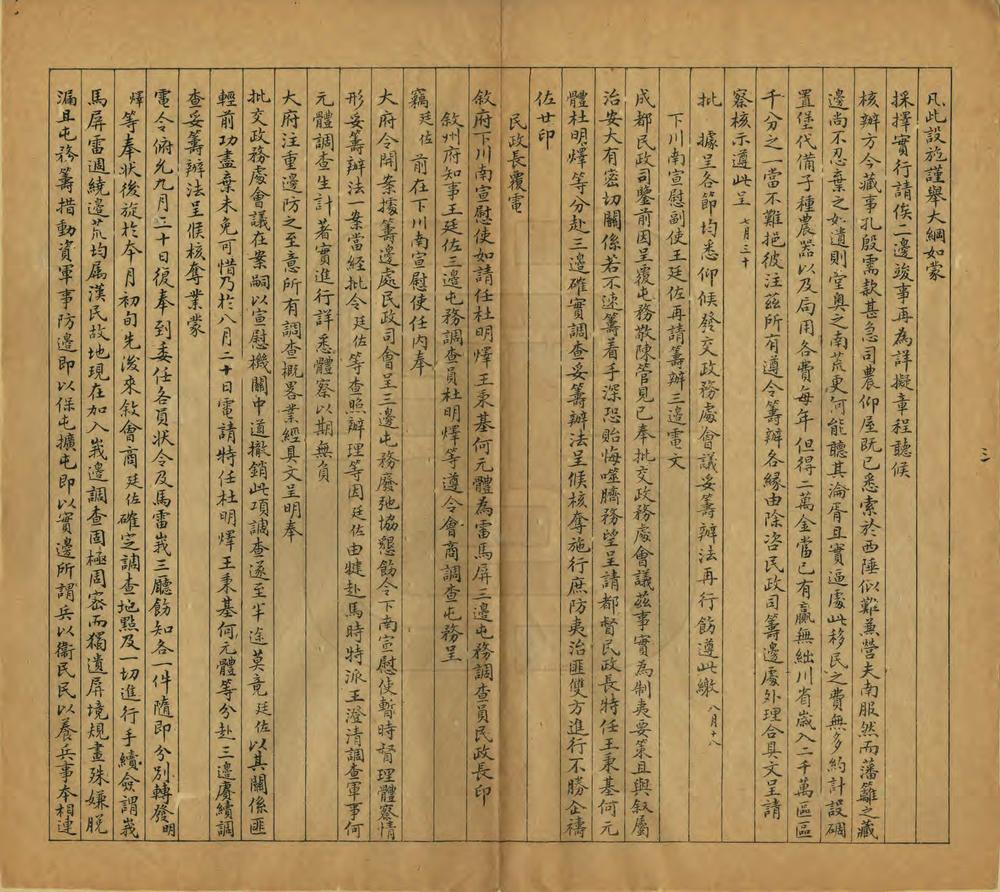 凡此設施謹舉大綱如蒙
採擇實行請俟二邊竣事再為詳擬章程聽候
核辦方今藏事孔殷需款甚急司農仰屋既已悉索於西陲似難兼營夫南服然而藩籬之藏
邊尚不忍棄之如遺則堂奧之南荒更何能聽其淪胥且實逼處此移民之費無多約計設碉
置堡代備子種農器以及局用各費每年但得二萬金當已有贏無絀川省歲入二千萬區區
千分之一當不難挹彼注茲所有遵令籌辦各緣由除咨民政司籌邊處外理合具文呈請
察核示遵此呈 七月三十
批 據呈各節均悉仰候發交政務處會議妥籌辦法再行飭遵此繳 八月十八
下川南宣慰副使王廷佐再請籌辦三邊電文
成都民政司鑒前因呈覆屯務敬陳管見已奉批交政務處會議茲事實為制夷妥策且與叙屬
治安大有密切關係若不速籌着手深恐貽悔噬臍務望呈請都督民政長特任王秉基何元
體杜明燡等分赴三邊確實調查妥籌辦法呈候核奪施行庶防夷治匪雙方進行不勝企禱
佐廿印
民政長覆電
敘府下川南宣慰使如請任杜明燡王秉基何元體為雷馬屏三邊屯務調查員民政長印
敘州府知事王廷佐三邊屯務調查員杜明燡等遵令會商調查屯務呈
竊廷佐前在下川南宣慰使任內奉
大府令開案據籌邊處民政司會呈三邊屯務廢弛協懇飭令下南宣慰使暫時督理體察情
形妥籌辦法一案當經批令廷佐等查照辦理等因廷佐由犍赴馬時特派王澄清調查軍事何
元體調查生計著實進行詳悉體察以期無負
大府注重邊防之至意所有調查概畧業經具文呈明奉
批交政務處會議在案嗣以宣慰機關中道撤銷此項調查遂至半途莫竟廷佐以其關係匪
輕前功盡棄未免可惜乃於八月二十日電請特任杜明燡王秉基何元體等分赴三邊賡續調
查妥籌辦法呈候核奪業蒙
電令俯允九月二十日復奉到委任各員狀令及馬雷峩三廳飭知各一件隨即分別轉發明
燡等奉狀後旋於本月初旬先後來敘會商廷佐確定調查地點及一切進行手續僉謂峩
馬屏雷週繞邊荒均屬漢民故地現在加入峩邊調查固極周密而獨遺屏境規畫殊嫌脫
漏且屯務籌措動資軍事防邊即以保擴屯即以實邊所謂兵以衞民民以養兵事本相連
三